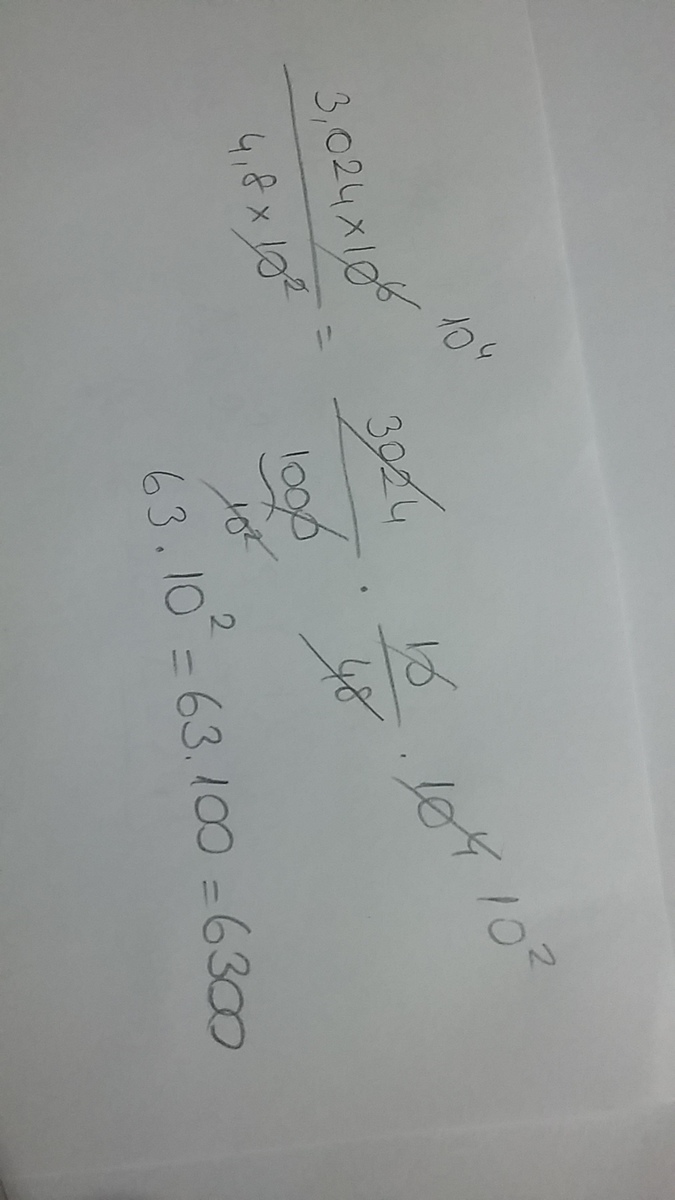 3,024 × 10⁶ 10⁴
4,8 × 10²
=
3024
1000
10²
·
10
48
· 10⁴ 10²
63 . 10² = 63 . 100 = 6300